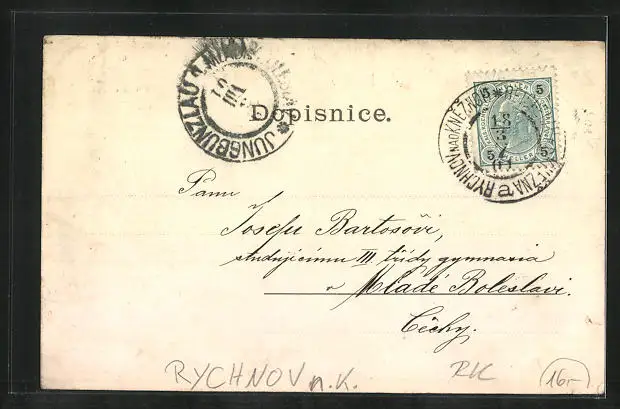 JUNGBUNZLAU
18
III
Dopisnice.
RYCHNOV NAD KNĚŽNOU
18
3
01
5
5
5
Pánu
Josefu Bartošovi,
studujícímu III. třídy gymnasia
v Mladé Boleslavi.
Čechy.
RYCHNOV n.K.
RK
16-